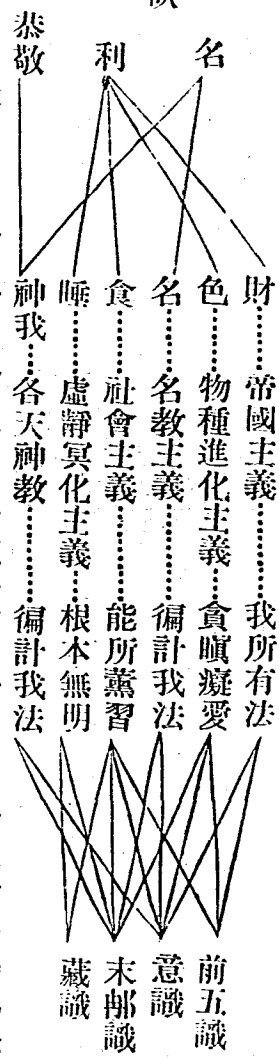 名
利
恭敬
財……帝國主義………我所有法
色……物種進化主義…貪瞋癡愛
名……名教主義………徧計我法
食……社會主義………能所薰習
睡……虛靜冥化主義…根本無明
神我…各天神教………徧計我法
前五識
意識
末那識
藏識